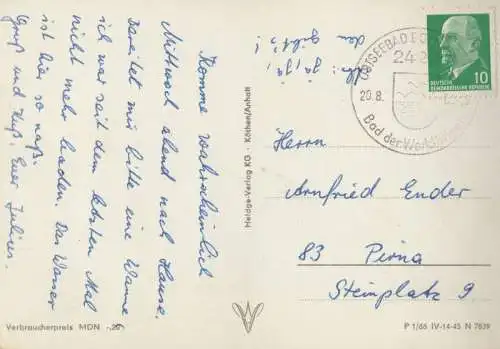 Komme wahrscheinlich
Mittwoch abend nach Hause.
Bereitet mir bitte eine Wanne
ich war seit dem letzten Mal
nicht mehr baden. Das Wasser
ist hier so naß.
Gruß und Kuß. Euer Julier.
den gibt's!
ja, ja,
OSTSEEBAD
242
20.8.
Bad der Werktätigen
DEUTSCHE
DEMOKRATISCHE REPUBLIK
10
Herrn
Arnfried Ender
83 Pirna
Steinplatz 9
Heldge-Verlag KG · Köthen/Anhalt
Verbraucherpreis MDN -,20
P 1/66 IV-14-45 N 7839